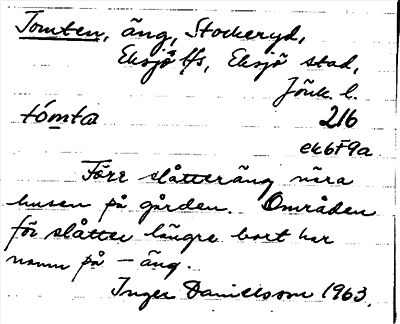 Tomten, äng, Stockeryd,
Eksjö lfs, Eksjö stad,
Jönk. l.
tómta 216
ek6F9a
Förr slåtteräng nära
husen på gården. Områden
för slåtter längre bort har
namn på – äng.
Inger Danielsson 1963.